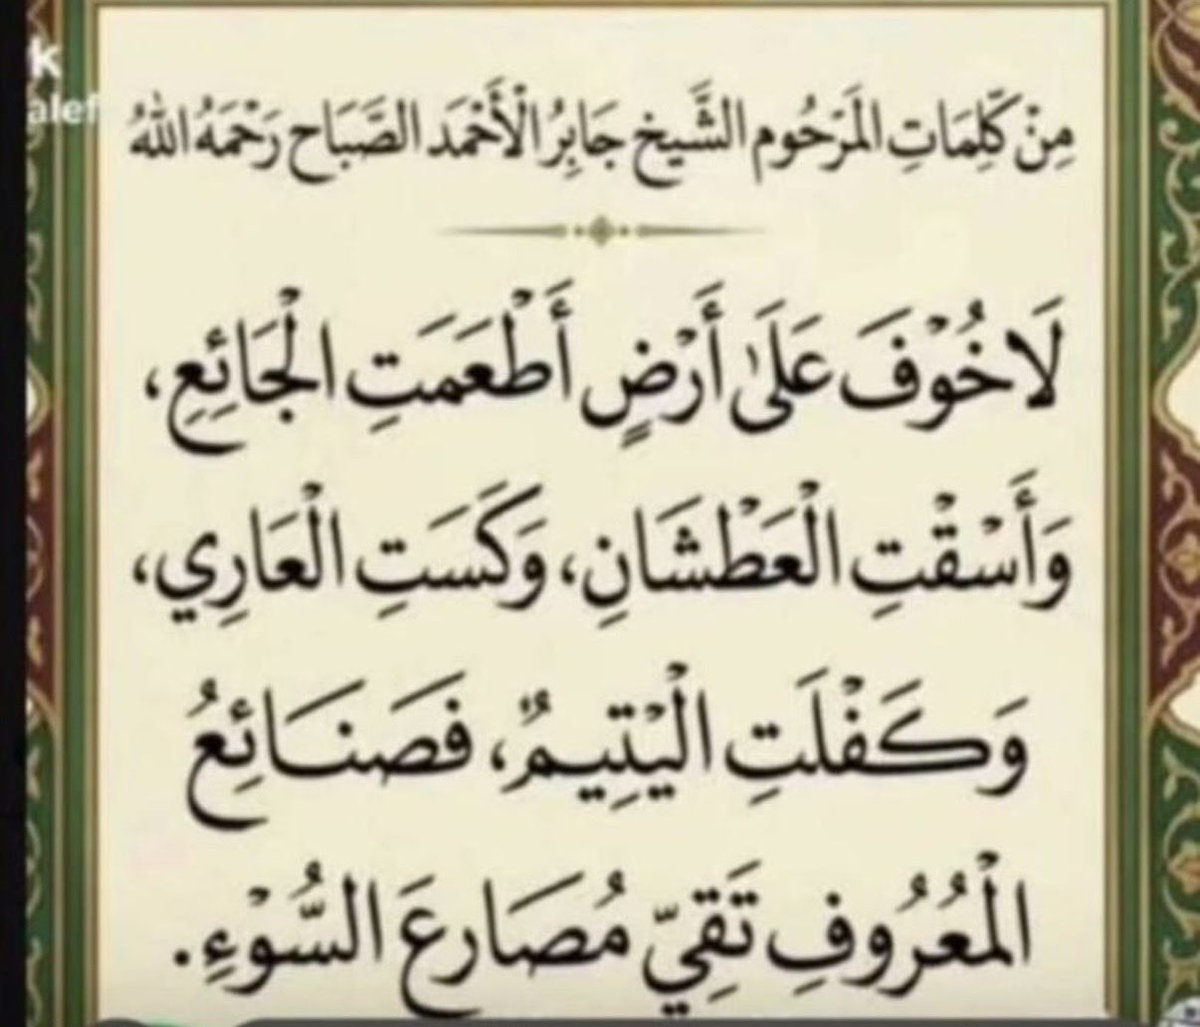 k
alef
مِنْ كَلِمَاتِ المَرْحُوم الشَّيخ جَابِرُ الْأَحْمَد الصَّبَاح رَحْمَهُ اللهُ
لَا خُوْفَ عَلَىٰ أَرْضٍ أَطْعَمَتِ الْجَائِعِ،
وَأَسْقْتِ الْعَطْشَانِ، وَكَسَتِ الْعَارِي،
وَكَفْلَتِ الْيْتِيمٌ، فَصَنَائِعُ
الْمْعُرُوفِ تَقِيّ مُصَارعَ السُّوْءِ.